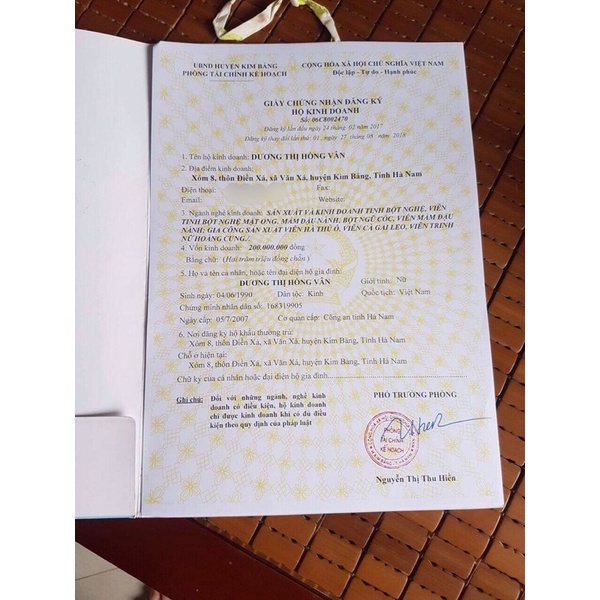 UBND HUYỆN KIM BẢNG
PHÒNG TÀI CHÍNH KẾ HOẠCH
CỘNG HÒA XÃ HỘI CHỦ NGHĨA VIỆT NAM
Độc lập - Tự do - Hạnh phúc
GIẤY CHỨNG NHẬN ĐĂNG KÝ
HỘ KINH DOANH
Số: 06C8002470
Đăng ký lần đầu ngày 24 tháng 02 năm 2017
Đăng ký thay đổi lần thứ: 01, ngày 27 tháng 08 năm 2018
1. Tên hộ kinh doanh: DƯƠNG THỊ HỒNG VÂN
2. Địa điểm kinh doanh:
Xóm 8, thôn Điền Xá, xã Văn Xá, huyện Kim Bảng, Tỉnh Hà Nam
Điện thoại: Fax
Email: Website:
3. Ngành nghề kinh doanh: SẢN XUẤT VÀ KINH DOANH TINH BỘT NGHỆ, VIÊN
TINH BỘT NGHỆ MẬT ONG, MẦM ĐẬU NÀNH, BỘT NGŨ CỐC, VIÊN MẦM ĐẬU
NÀNH; GIA CÔNG SẢN XUẤT VIÊN HÀ THỦ Ô, VIÊN CÀ GAI LEO, VIÊN TRINH
NỮ HOÀNG CUNG./.
4. Vốn kinh doanh: 200.000.000 đồng
Bằng chữ: (Hai trăm triệu đồng chẵn)
5. Họ và tên cá nhân, hoặc tên đại diện hộ gia đình:
DƯƠNG THỊ HỒNG VÂN Giới tính: Nữ
Sinh ngày: 04/06/1990 Dân tộc: Kinh Quốc tịch: Việt Nam
Chứng minh nhân dân số: 168319905
Ngày cấp: 05/7/2007 Cơ quan cấp: Công an tỉnh Hà Nam
6. Nơi đăng ký hộ khẩu thường trú:
Xóm 8, thôn Điền Xá, xã Văn Xá, huyện Kim Bảng, Tỉnh Hà Nam
Chỗ ở hiện tại:
Xóm 8, thôn Điền Xá, xã Văn Xá, huyện Kim Bảng, Tỉnh Hà Nam
Chữ ký của cá nhân hoặc đại diện hộ gia đình
Ghi chú: Đối với những ngành, nghề kinh
doanh có điều kiện, hộ kinh doanh
chỉ được kinh doanh khi có đủ điều
kiện theo quy định của pháp luật
PHÓ TRƯỞNG PHÒNG
PHÒNG
TÀI CHÍNH
KẾ HOẠCH
Nguyễn Thị Thu Hiền